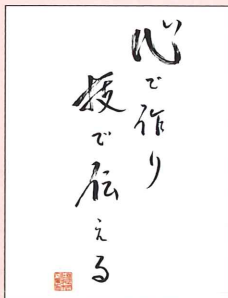 心で作り
技で伝える